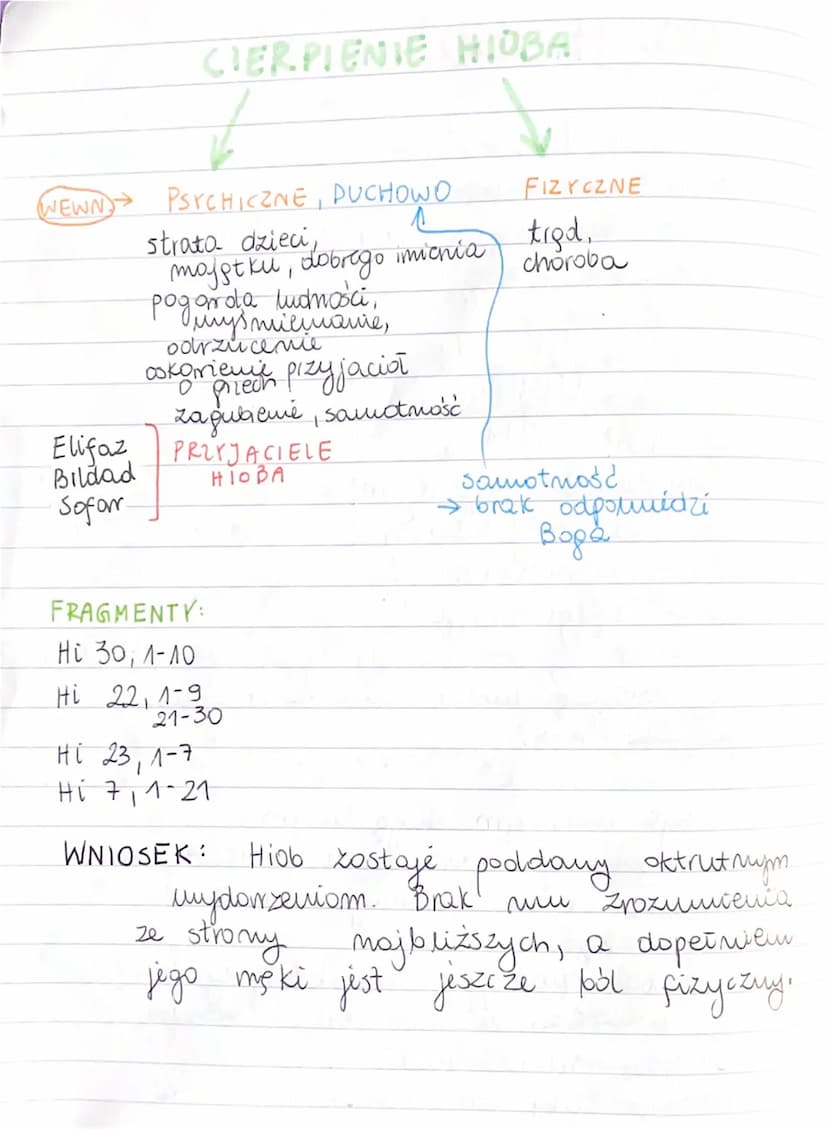 CIERPIENIE HIOBA
WEWN. → PSYCHICZNE, DUCHOWO
FIZYCZNE
strata dzieci,
majątku, dobrego imienia
pogarda ludności,
wyśmiewanie,
odrzucenie
oskarżenie przyjaciół
o grzech
zagubienie, samotność
trąd,
choroba
Elifaz
Bildad
Sofar
PRZYJACIELE
HIOBA
samotność
→ brak odpowiedzi
Boga
FRAGMENTY:
Hi 30, 1-10
Hi 22, 1-9
21-30
Hi 23, 1-7
Hi 7, 1-21
WNIOSEK: Hiob zostaje poddany oktrutnym
wydarzeniom. Brak mu zrozumienia
ze strony najbliższych, a dopełnieniem
jego męki jest jeszcze ból fizyczny.